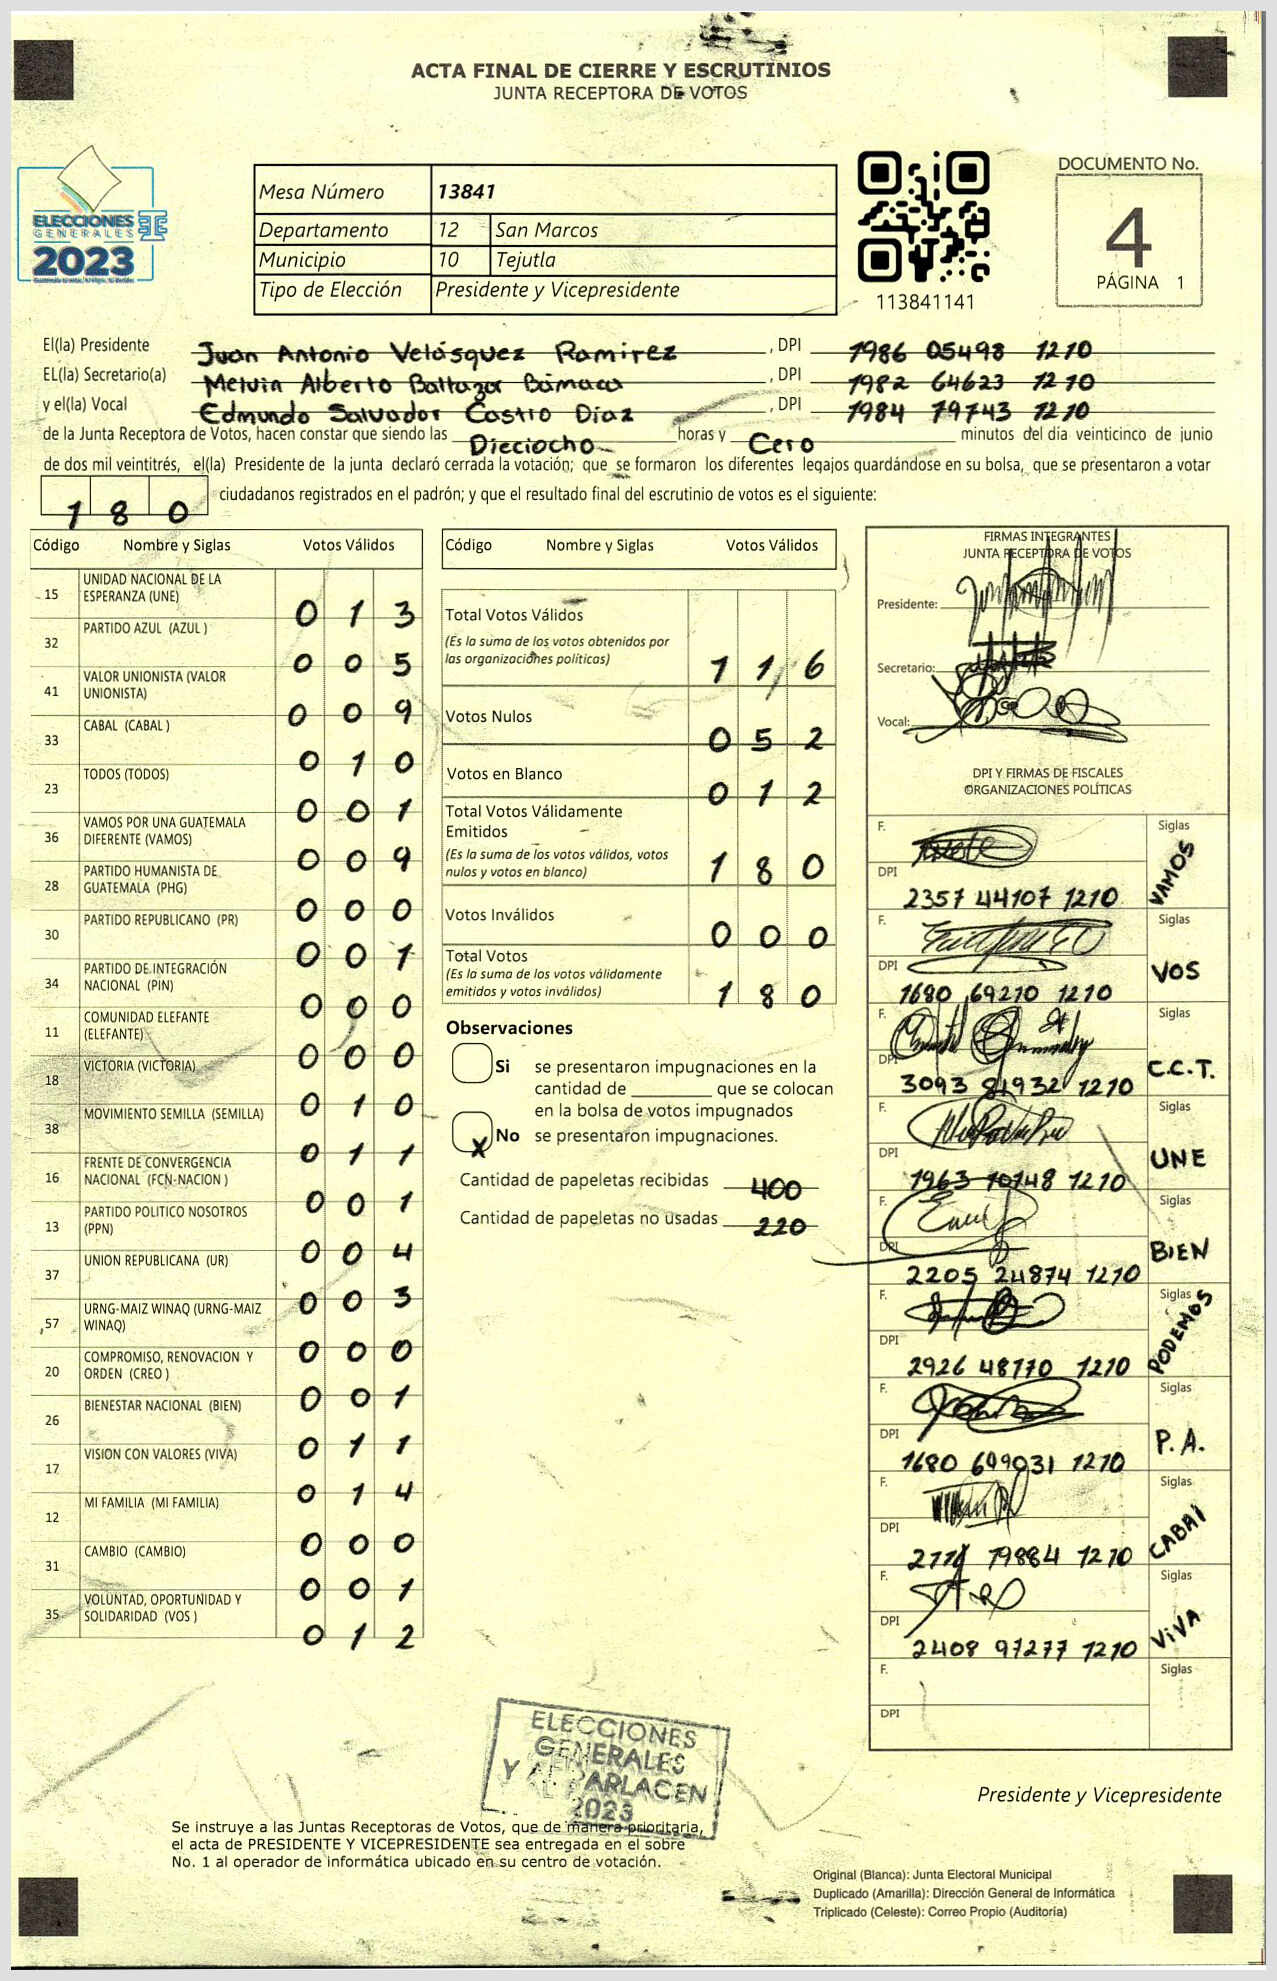 ACTA FINAL DE CIERRE Y ESCRUTINIOS
JUNTA RECEPTORA DE VOTOS
ELECCIONES
GENERALES
2023
Mesa Número 13841
Departamento 12 San Marcos
Municipio 10 Tejutla
Tipo de Elección Presidente y Vicepresidente
113841141
DOCUMENTO No.
4
PÁGINA 1
El(la) Presidente Juan Antonio Velásquez Ramirez , DPI 1986 05498 1210
EL(la) Secretario(a) Melvin Alberto Baltazar Bámaca , DPI 1982 64623 1210
y el(la) Vocal Edmundo Salvador Castro Díaz , DPI 1984 79743 1210
de la Junta Receptora de Votos, hacen constar que siendo las Dieciocho horas y Cero minutos del día veinticinco de junio
de dos mil veintitrés, el(la) Presidente de la junta declaró cerrada la votación; que se formaron los diferentes legajos quardándose en su bolsa, que se presentaron a votar
180 ciudadanos registrados en el padrón; y que el resultado final del escrutinio de votos es el siguiente:
Código Nombre y Siglas Votos Válidos
15 UNIDAD NACIONAL DE LA
ESPERANZA (UNE) 013
32 PARTIDO AZUL (AZUL ) 005
41 VALOR UNIONISTA (VALOR
UNIONISTA) 009
33 CABAL (CABAL ) 010
23 TODOS (TODOS) 001
36 VAMOS POR UNA GUATEMALA
DIFERENTE (VAMOS) 009
28 PARTIDO HUMANISTA DE
GUATEMALA (PHG) 000
30 PARTIDO REPUBLICANO (PR) 001
34 PARTIDO DE INTEGRACIÓN
NACIONAL (PIN) 000
11 COMUNIDAD ELEFANTE
(ELEFANTE) 000
18 VICTORIA (VICTORIA) 010
38 MOVIMIENTO SEMILLA (SEMILLA) 011
16 FRENTE DE CONVERGENCIA
NACIONAL (FCN-NACION ) 001
13 PARTIDO POLITICO NOSOTROS
(PPN) 004
37 UNION REPUBLICANA (UR) 003
57 URNG-MAIZ WINAQ (URNG-MAIZ
WINAQ) 000
20 COMPROMISO, RENOVACION Y
ORDEN (CREO ) 001
26 BIENESTAR NACIONAL (BIEN) 011
17 VISION CON VALORES (VIVA) 014
12 MI FAMILIA (MI FAMILIA) 000
31 CAMBIO (CAMBIO) 001
35 VOLUNTAD, OPORTUNIDAD Y
SOLIDARIDAD (VOS ) 012
Código Nombre y Siglas Votos Válidos
Total Votos Válidos
(Es la suma de los votos obtenidos por
las organizaciones políticas) 116
Votos Nulos 052
Votos en Blanco 012
Total Votos Válidamente
Emitidos
(Es la suma de los votos válidos, votos
nulos y votos en blanco) 180
Votos Inválidos 000
Total Votos
(Es la suma de los votos válidamente
emitidos y votos inválidos) 180
Observaciones
Si se presentaron impugnaciones en la
cantidad de ________ que se colocan
en la bolsa de votos impugnados
X No se presentaron impugnaciones.
Cantidad de papeletas recibidas 400
Cantidad de papeletas no usadas 220
FIRMAS INTEGRANTES
JUNTA RECEPTORA DE VOTOS
Presidente:
Secretario:
Vocal:
DPI Y FIRMAS DE FISCALES
ORGANIZACIONES POLÍTICAS
F. Siglas VAMOS
DPI 2357 44107 1210
F. Siglas VOS
DPI 1680 69210 1210
F. Siglas C.C.T.
DPI 3093 81932 1210
F. Siglas UNE
DPI 1963 10148 1210
F. Siglas BIEN
DPI 2205 24874 1210
F. Siglas PODEMOS
DPI 2926 48170 1210
F. Siglas P.A.
DPI 1680 699031 1210
F. Siglas CABAl
DPI 79884 1210
F. Siglas ViVA
DPI 2408 97277 1210
F. Siglas
DPI
ELECCIONES
GENERALES
Y AL PARLACEN
2023
Presidente y Vicepresidente
Se instruye a las Juntas Receptoras de Votos, que de manera prioritaria,
el acta de PRESIDENTE Y VICEPRESIDENTE sea entregada en el sobre
No. 1 al operador de informática ubicado en su centro de votación.
Original (Blanca): Junta Electoral Municipal
Duplicado (Amarilla): Dirección General de Informática
Triplicado (Celeste): Correo Propio (Auditoría)